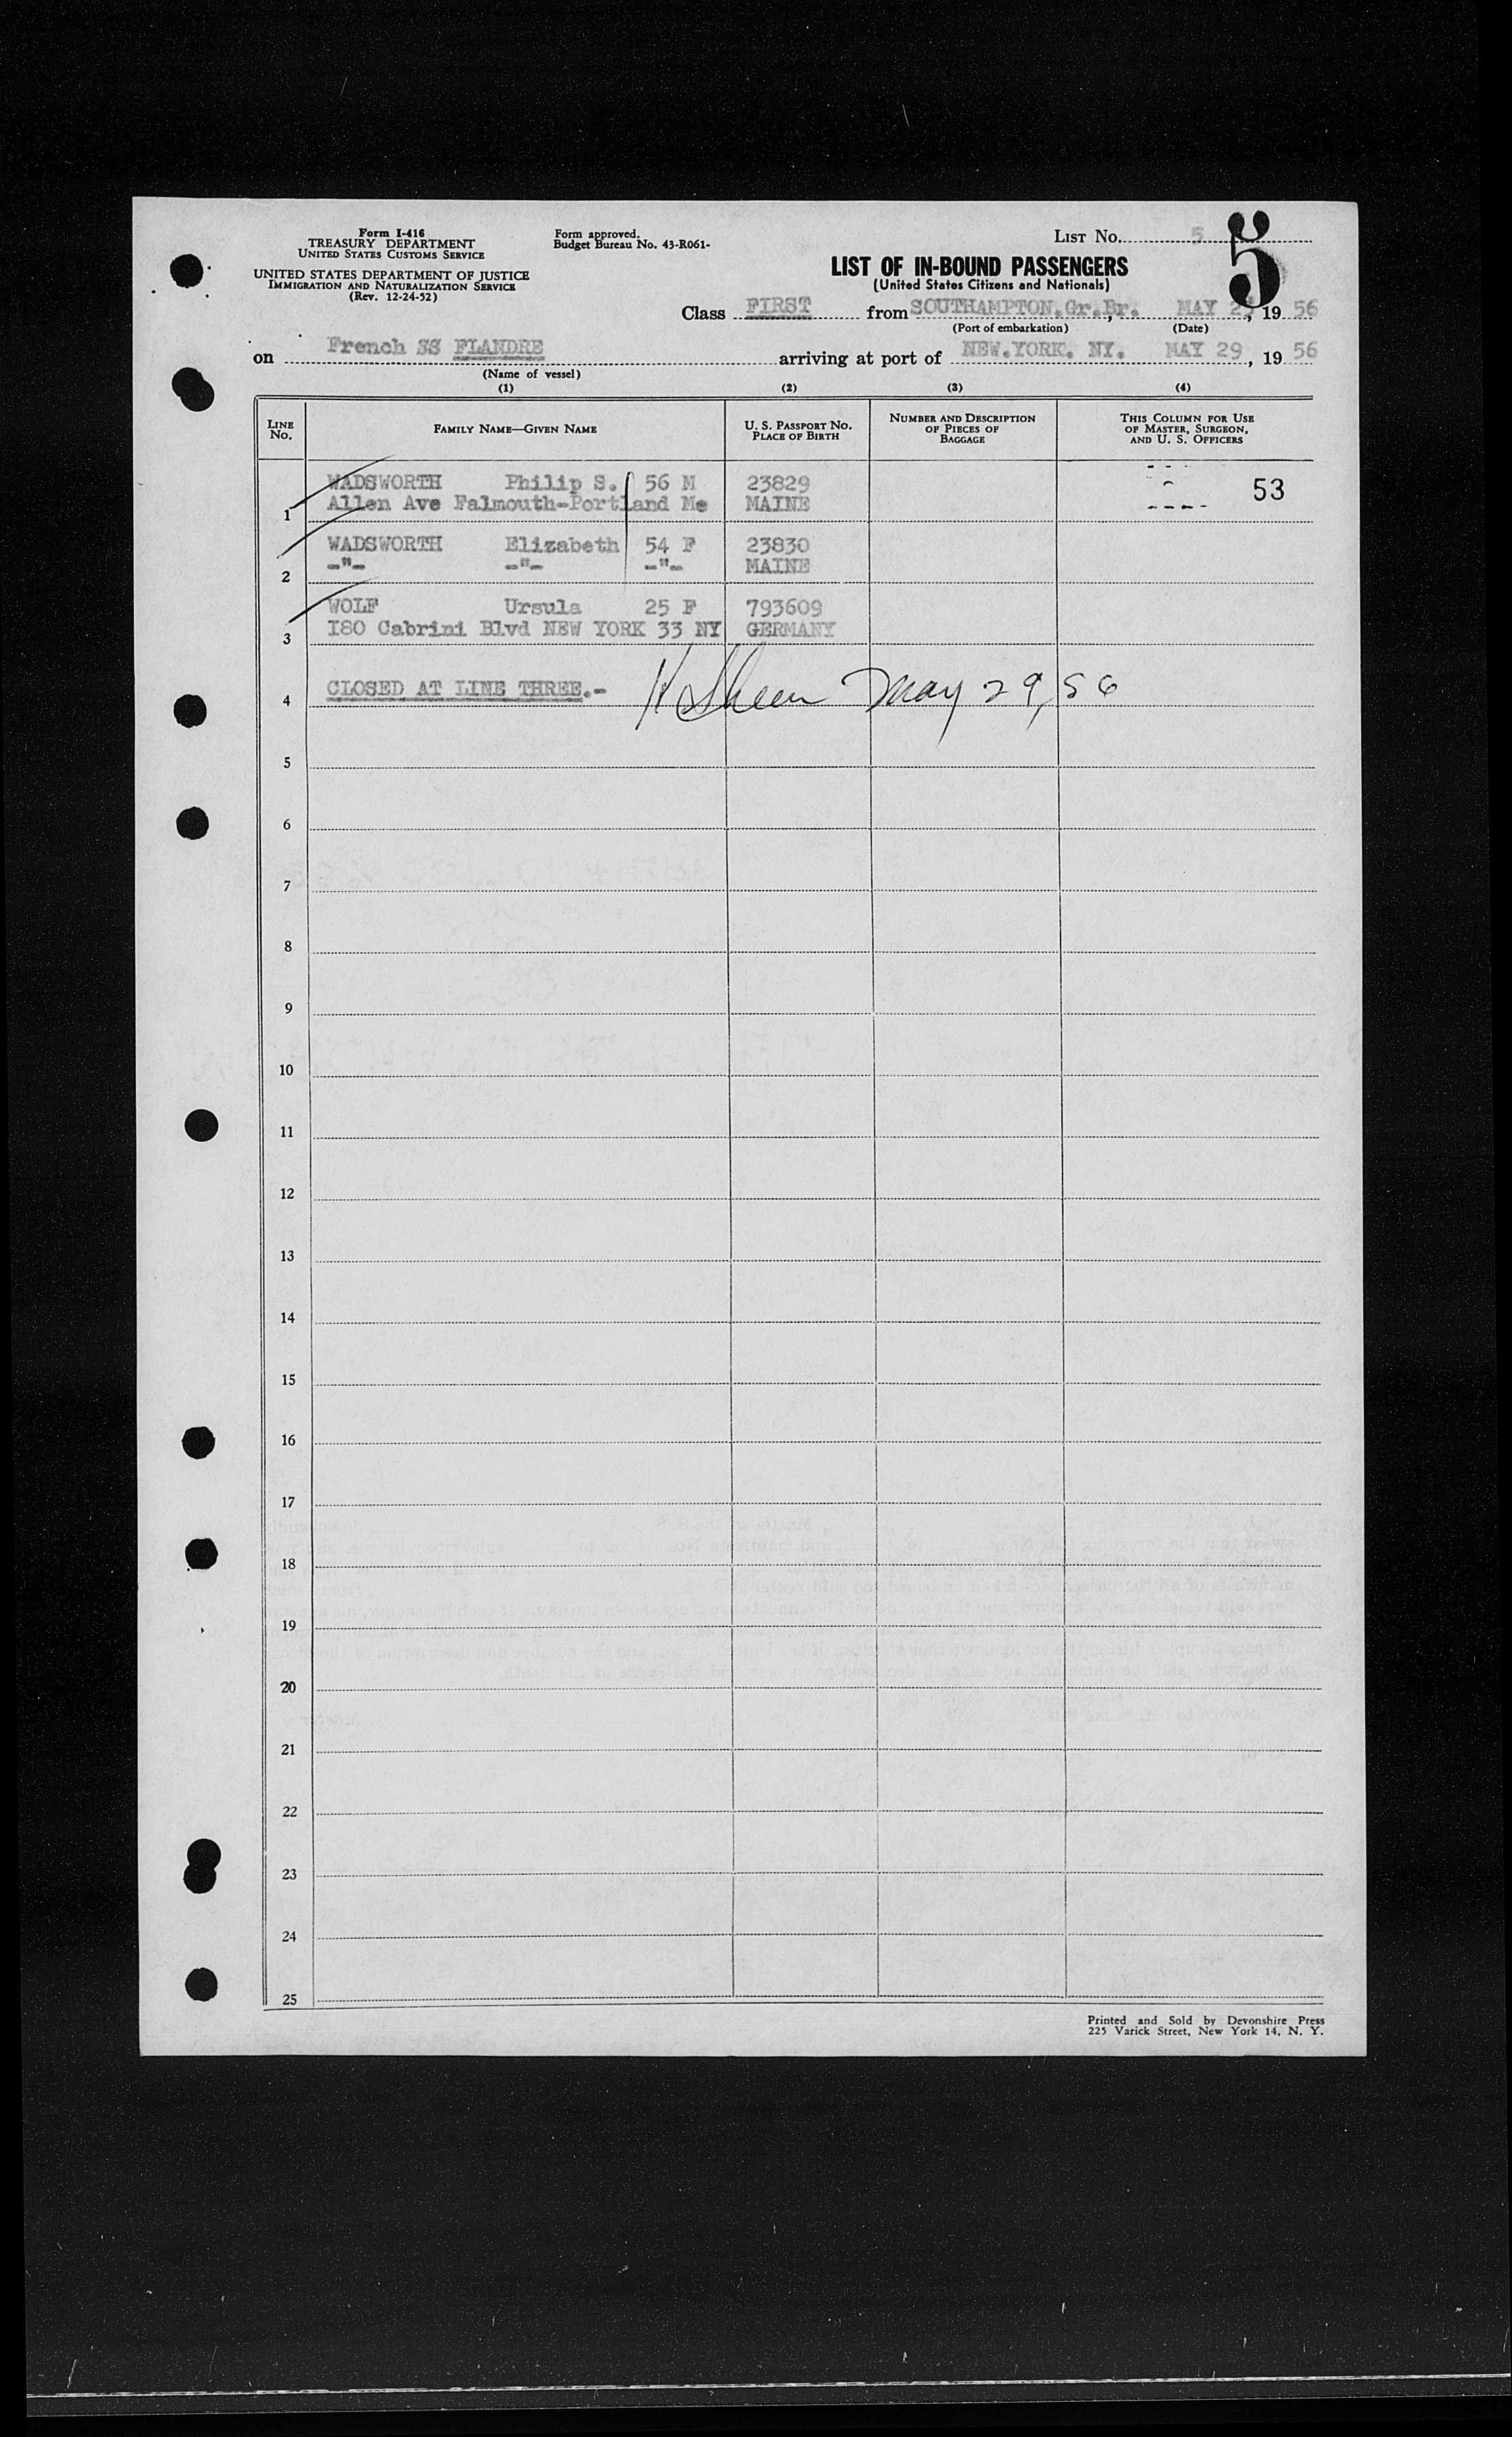 Form I-416
TREASURY DEPARTMENT
UNITED STATES CUSTOMS SERVICE
UNITED STATES DEPARTMENT OF JUSTICE
IMMIGRATION AND NATURALIZATION SERVICE
(Rev. 12-24-52)
Form approved.
Budget Bureau No. 43-R061-
LIST NO. 5
5
LIST OF IN-BOUND PASSENGERS
(United States Citizens and Nationals)
Class FIRST from SOUTHAMPTON.Gr.Br. MAY , 19 56
(Port of embarkation) (Date)
on French SS FLANDRE arriving at port of NEW.YORK. NY. MAY 29 , 19 56
(Name of vessel)
(1) (2) (3) (4)
LINE NO. FAMILY NAME—GIVEN NAME U. S. PASSPORT NO. PLACE OF BIRTH NUMBER AND DESCRIPTION OF PIECES OF BAGGAGE THIS COLUMN FOR USE OF MASTER, SURGEON, AND U. S. OFFICERS
WADSWORTH Philip S. 56 M 23829 53
1 Allen Ave Falmouth-Portland Me MAINE
WADSWORTH Elizabeth 54 F 23830
2 -"- -"- -"- MAINE
WOLF Ursula 25 F 793609
3 I80 Cabrini Blvd NEW YORK 33 NY GERMANY
4 CLOSED AT LINE THREE.- May 29, 56
5
6
7
8
9
10
11
12
13
14
15
16
17
18
19
20
21
22
23
24
25
Printed and Sold by Devonshire Press
225 Varick Street, New York 14, N. Y.